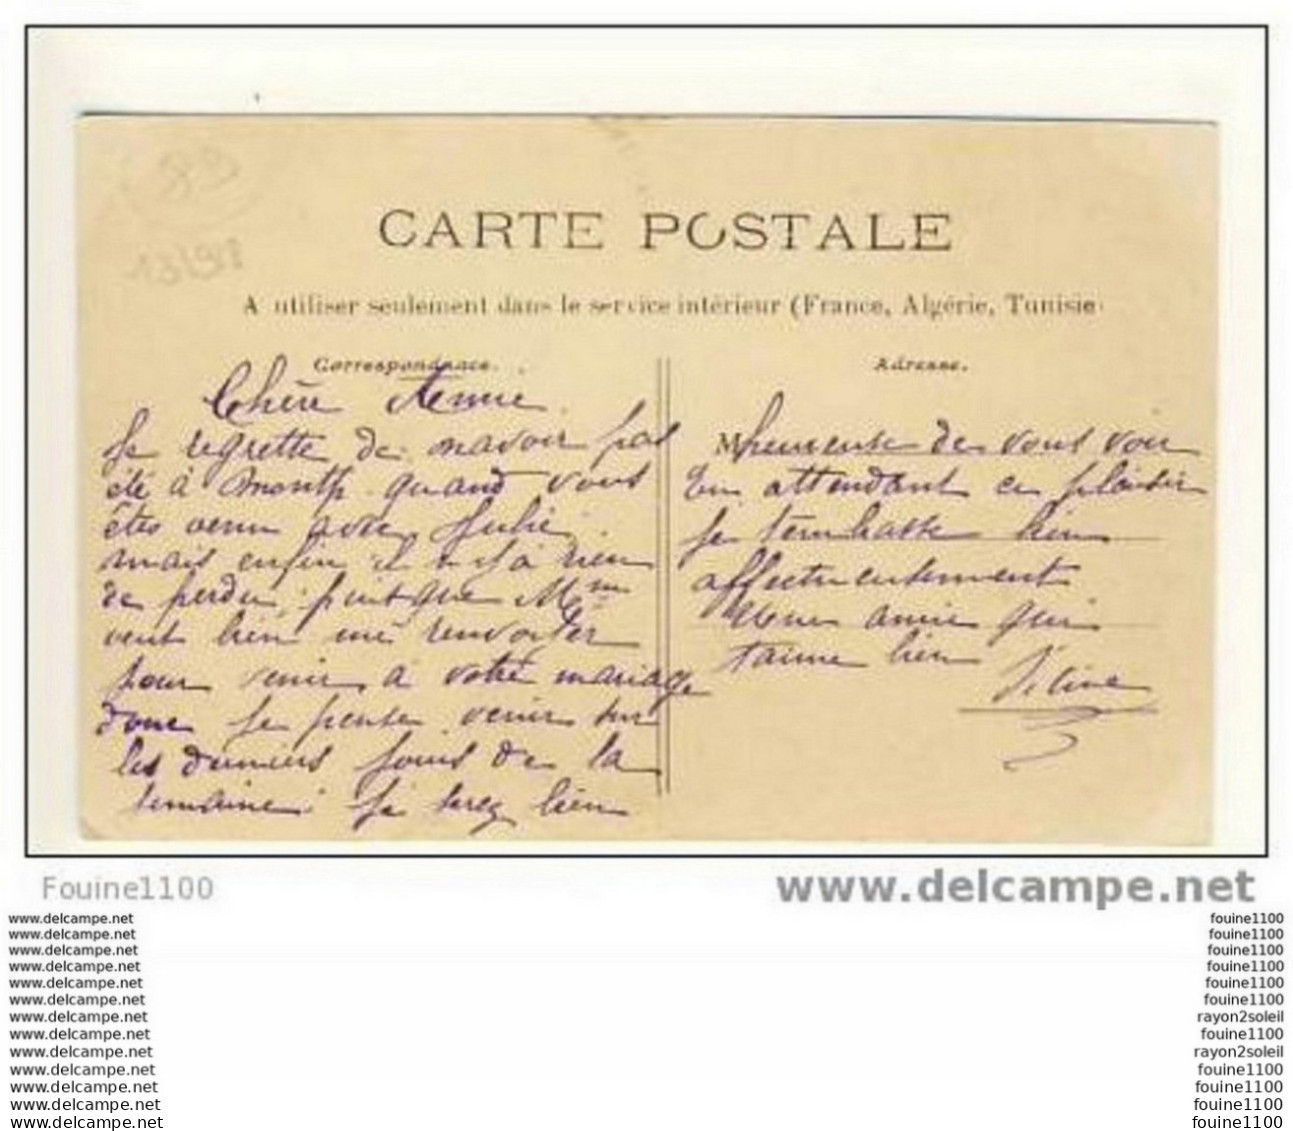 83
CARTE POSTALE
A utiliser seulement dans le service intérieur (France, Algérie, Tunisie)
Correspondance.
Adresse.
Chère
Je regrette de navoir pas
été à Montp quand vous
êtes venu avec Julie
mais enfin il n y a rien
de perdu, puisque Mme
veut bien me remporter
pour venir a votre mariage
donc Je pense venir sur
les derniers jours de la
semaine: Je serez bien
M heureuse de vous voir
En attendant ce plaisir
Je tembrasse bien
affectueusement
Une amie qui
taime bien
Fouine1100
www.delcampe.net
www.delcampe.net
www.delcampe.net
www.delcampe.net
www.delcampe.net
www.delcampe.net
www.delcampe.net
www.delcampe.net
www.delcampe.net
www.delcampe.net
www.delcampe.net
www.delcampe.net
www.delcampe.net
www.delcampe.net
fouine1100
fouine1100
fouine1100
fouine1100
fouine1100
fouine1100
rayon2soleil
fouine1100
rayon2soleil
fouine1100
fouine1100
fouine1100
fouine1100